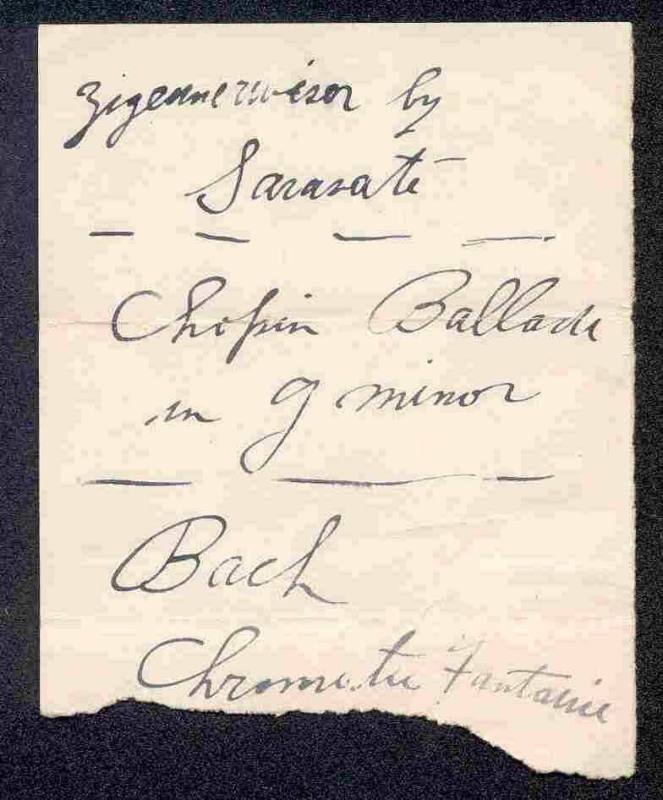 Zigeunerwisen by
Sarasate
Chopin Ballade
in G minor
Bach
Chromatic Fantaisie